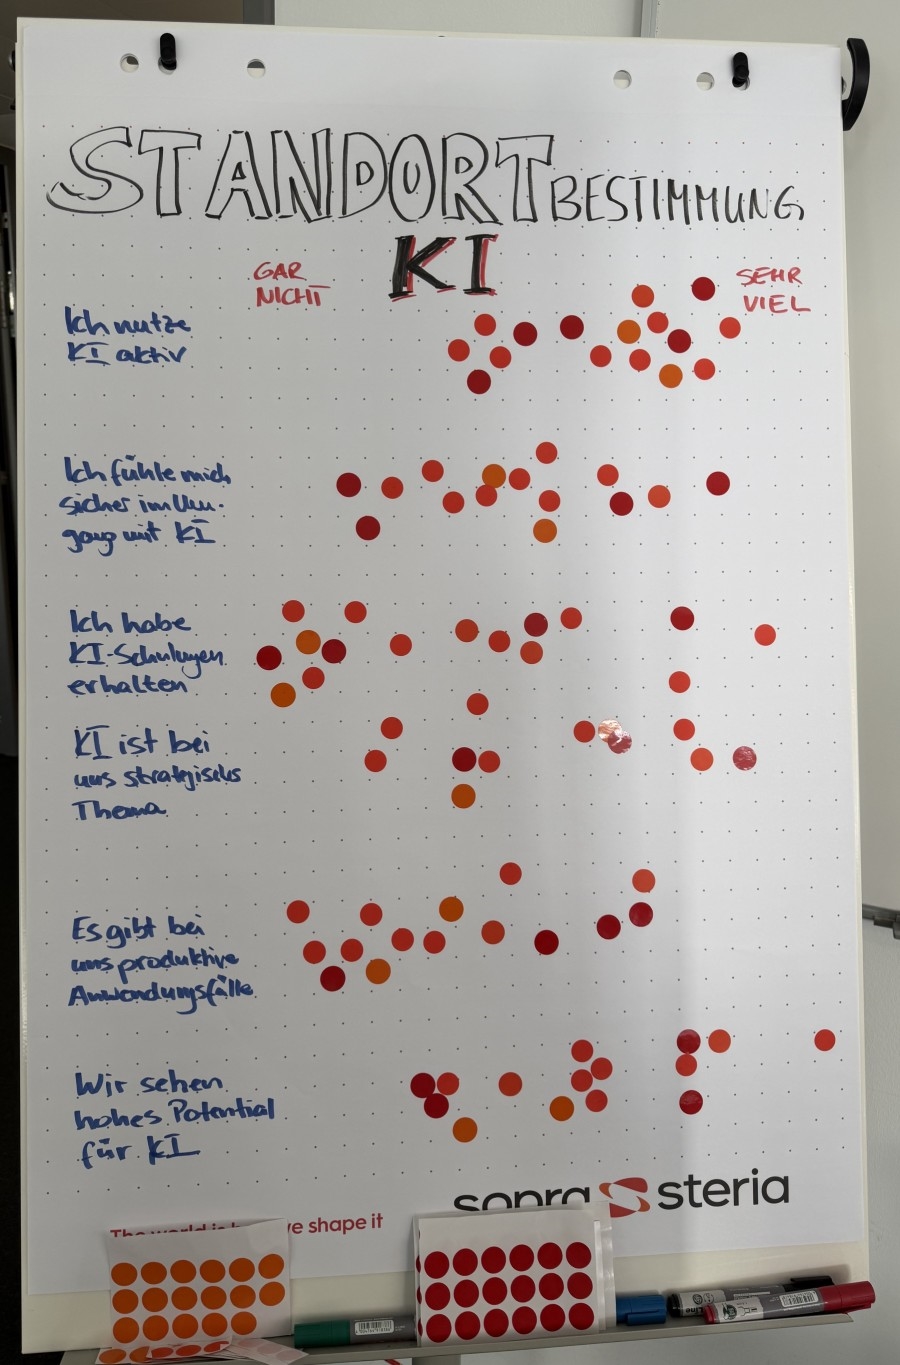 STANDORTBESTIMMUNG
KI
GAR
NICHT
SEHR
VIEL
Ich nutze
KI aktiv
Ich fühle mich
sicher im Um-
gang mit KI
Ich habe
KI-Schulungen
erhalten
KI ist bei
uns strategisches
Thema
Es gibt bei
uns produktive
Anwendungsfälle
Wir sehen
hohes Potential
für KI
sopra steria
The world is how we shape it